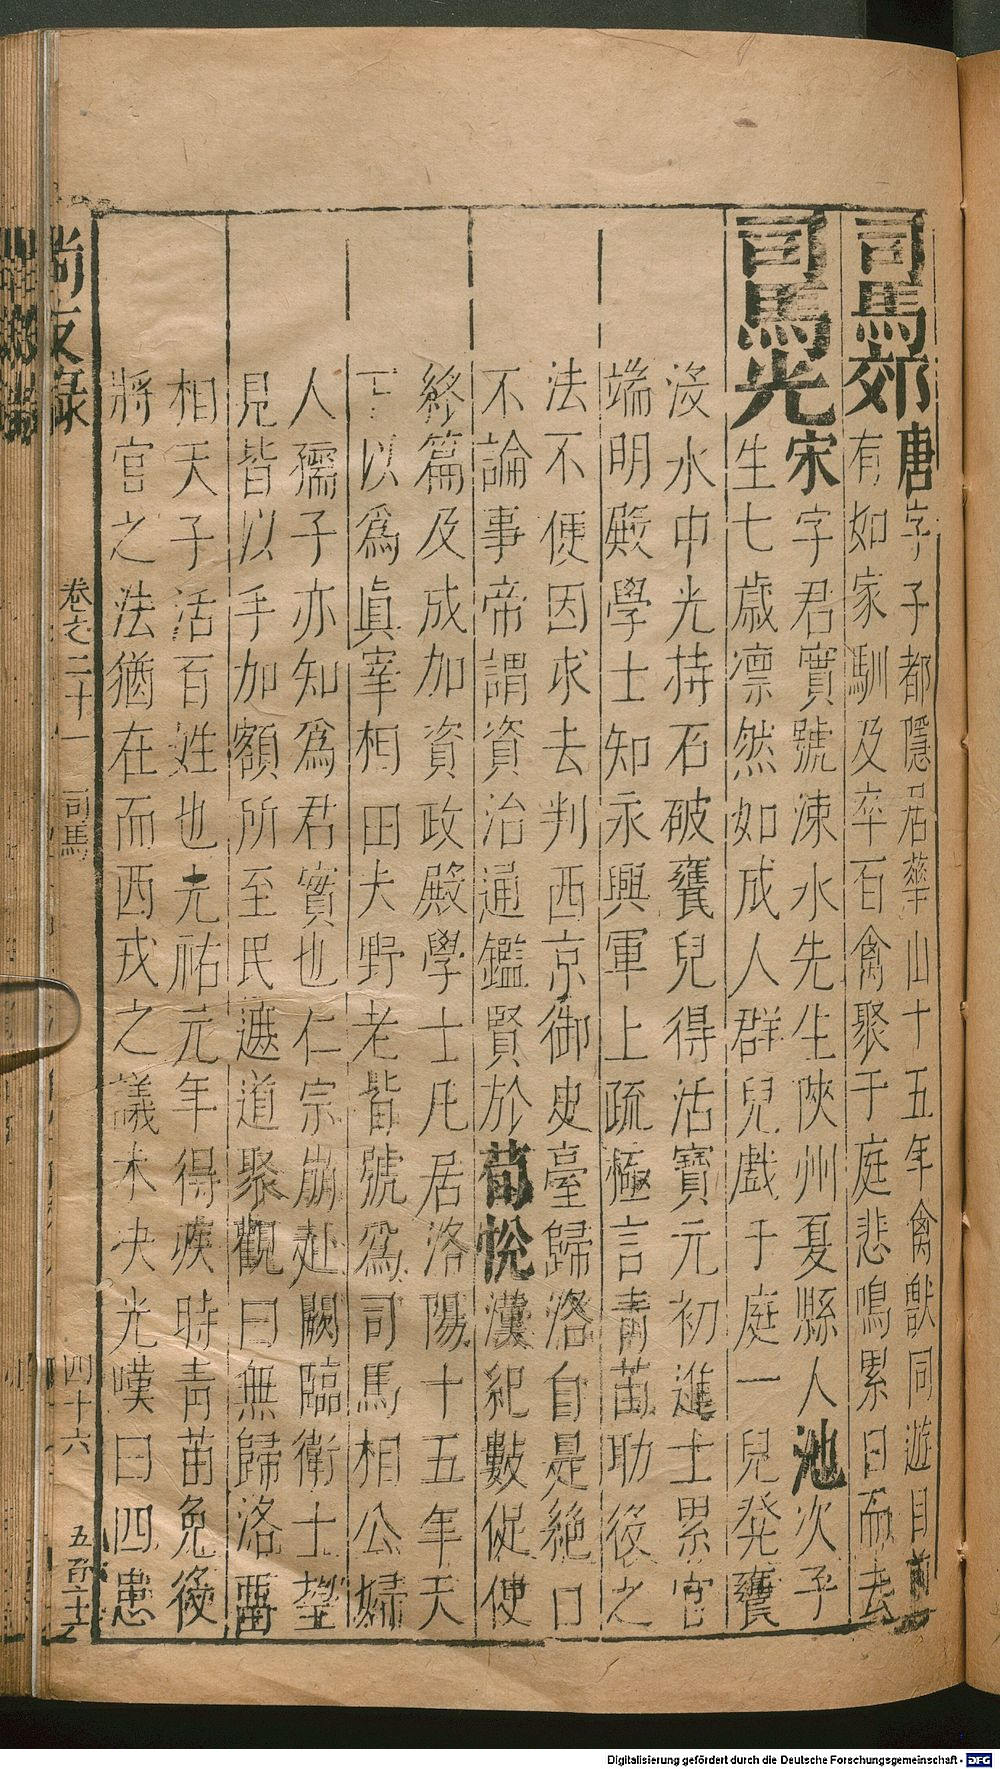 司馬郊唐字子都隱居華山十五年禽獸同遊目前
有如家馴及卒百禽聚于庭悲鳴累日而去
司馬光宋字君實號涑水先生陝州夏縣人池次子
生七歲凛然如成人群兒戲于庭一兒登甕
没水中光持石破甕兒得活寶元初進士累官
端明殿學士知永興軍上疏極言青苗助役之
法不便因求去判西京御史臺歸洛自是絕口
不論事帝謂資治通鑑賢於荀悅漢紀數促使
終篇及成加資政殿學士凡居洛陽十五年天
下以爲眞宰相田夫野老皆號爲司馬相公婦
人孺子亦知爲君實也仁宗崩赴闕臨衛士望
見皆以手加額所至民遮道聚觀曰無歸洛畱
相天子活百姓也元祐元年得疾時青苗免役
將官之法猶在而西戎之議未决光嘆曰四患
尚友錄 卷之二十一 司馬 四十六 五百十
Digitalisierung gefördert durch die Deutsche Forschungsgemeinschaft - DFG